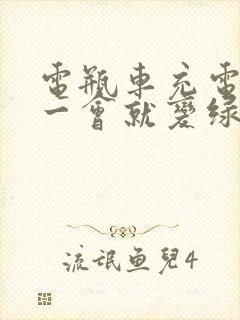 電瓶車充電
一會就變綠
流氓鱼兒4